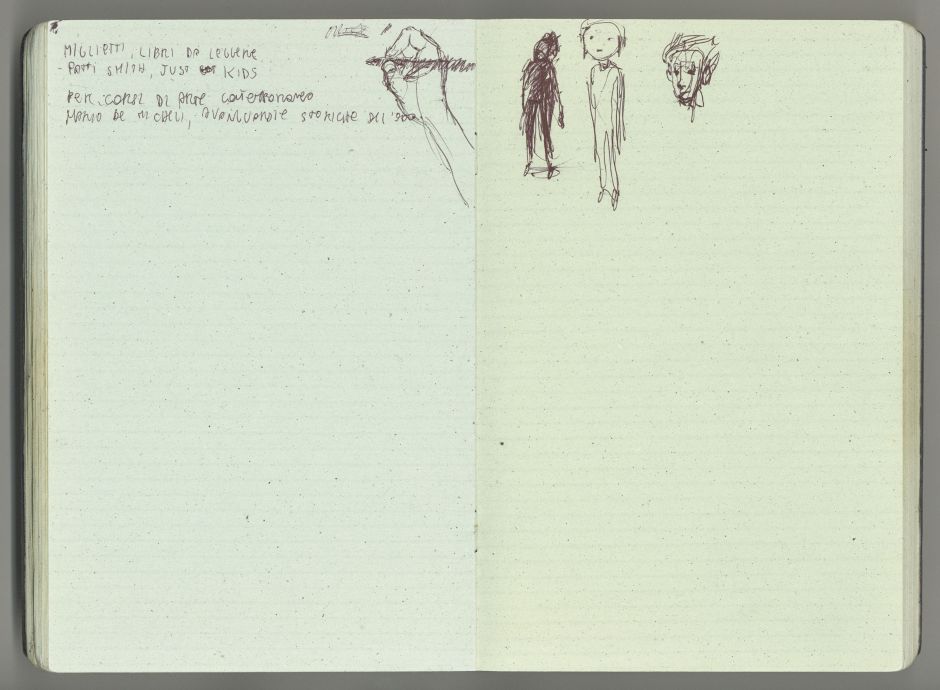 MIGLIETTI, LIBRI DA LEGGERE
- PATTI SMITH, JUST KIDS
PERCORSI DI ARTE CONTEMPORANEO
MARIO DE MICHELI, AVANGUARDIE STORICHE DEL '900